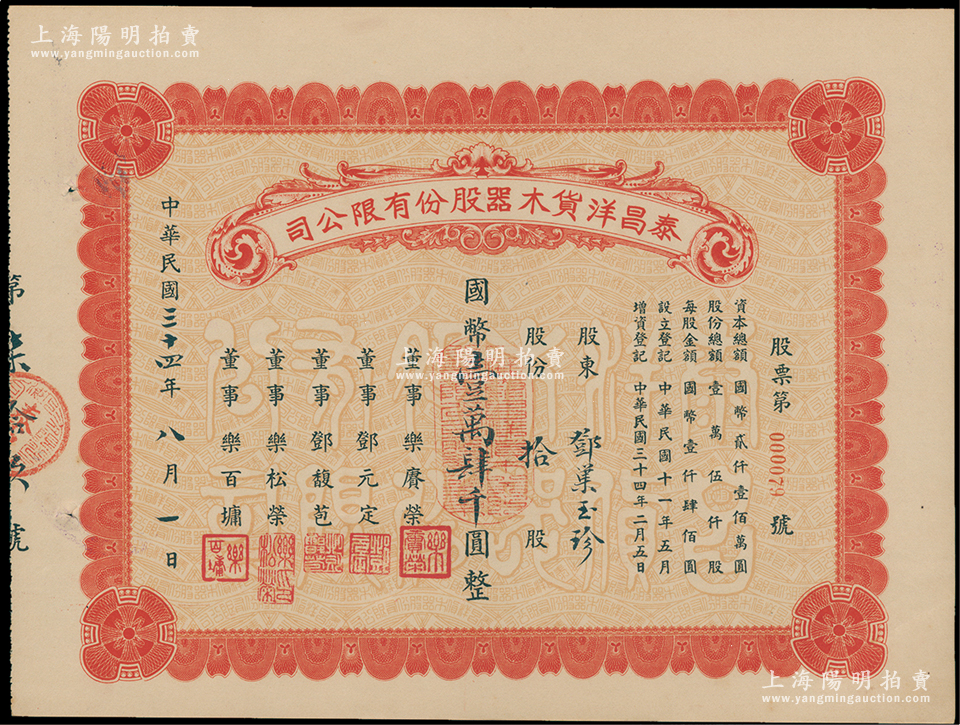 上海陽明拍賣
www.yangmingauction.com
泰昌洋貨木器股份有限公司
股票第 000079 號
資本總額 國幣貳仟壹佰萬圓
股份總額 壹萬伍仟股
每股金額 國幣壹仟肆佰圓
設立登記 中華民國十一年五月
增資登記 中華民國三十四年二月五日
股東 鄧葉玉珍
股份 拾 股
國幣壹萬肆千圓整
董事 樂賡榮
董事 鄧元定
董事 鄧馥苞
董事 樂松榮
董事 樂百墉
中華民國三十四年八月一日
第
號
上海陽明拍賣
www.yangmingauction.com
上海陽明拍賣
www.yangmingauction.com